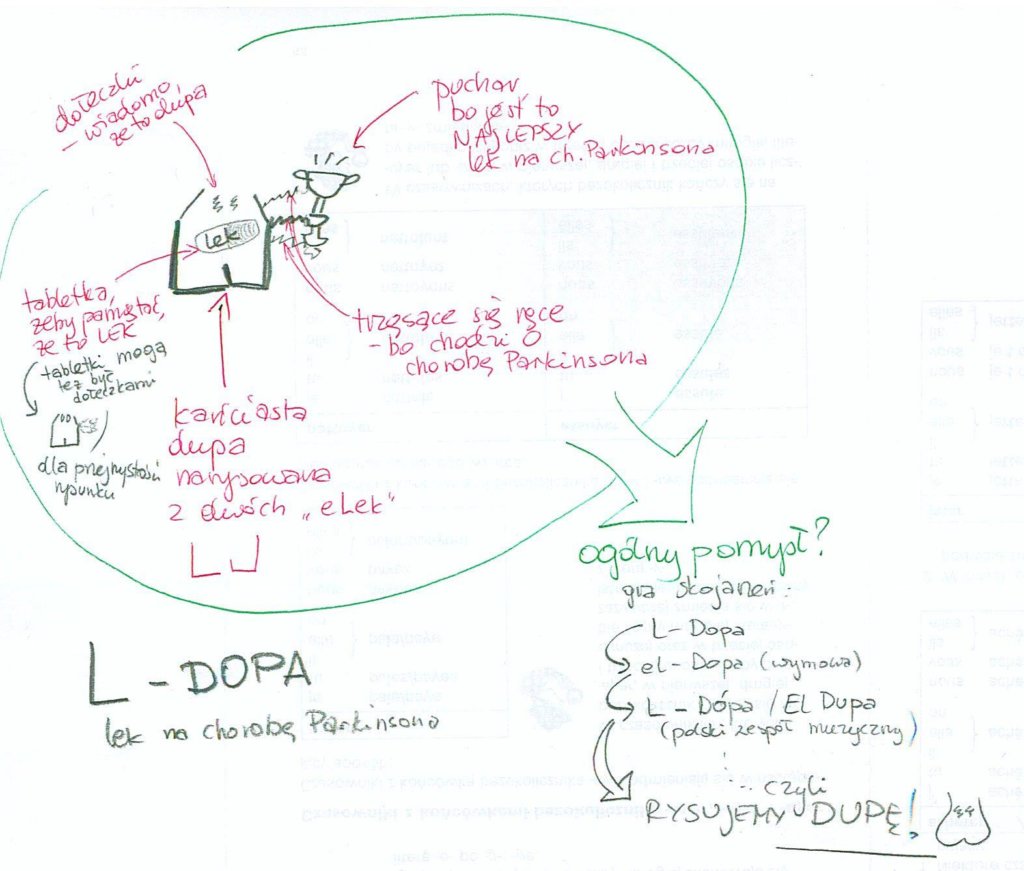 dołeczki
– wiadomo
że to dupa
puchar
bo jest to
NAJLEPSZY
lek na ch. Parkinsona
lek
tabletka,
żeby pamiętać,
że to LEK
tabletki mogą
też być
dołeczkami
dla przejrzystości
rysunku
trzęsące się ręce
– bo chodzi o
chorobę Parkinsona
kańciasta
dupa
narysowana
z dwóch „elek"
L – DOPA
lek na chorobę Parkinsona
ogólny pomysł?
gra skojarzeń:
L – Dopa
el – Dopa (wymowa)
L – Dópa / El Dupa
(polski zespół muzyczny)
czyli
RYSUJEMY DUPĘ!